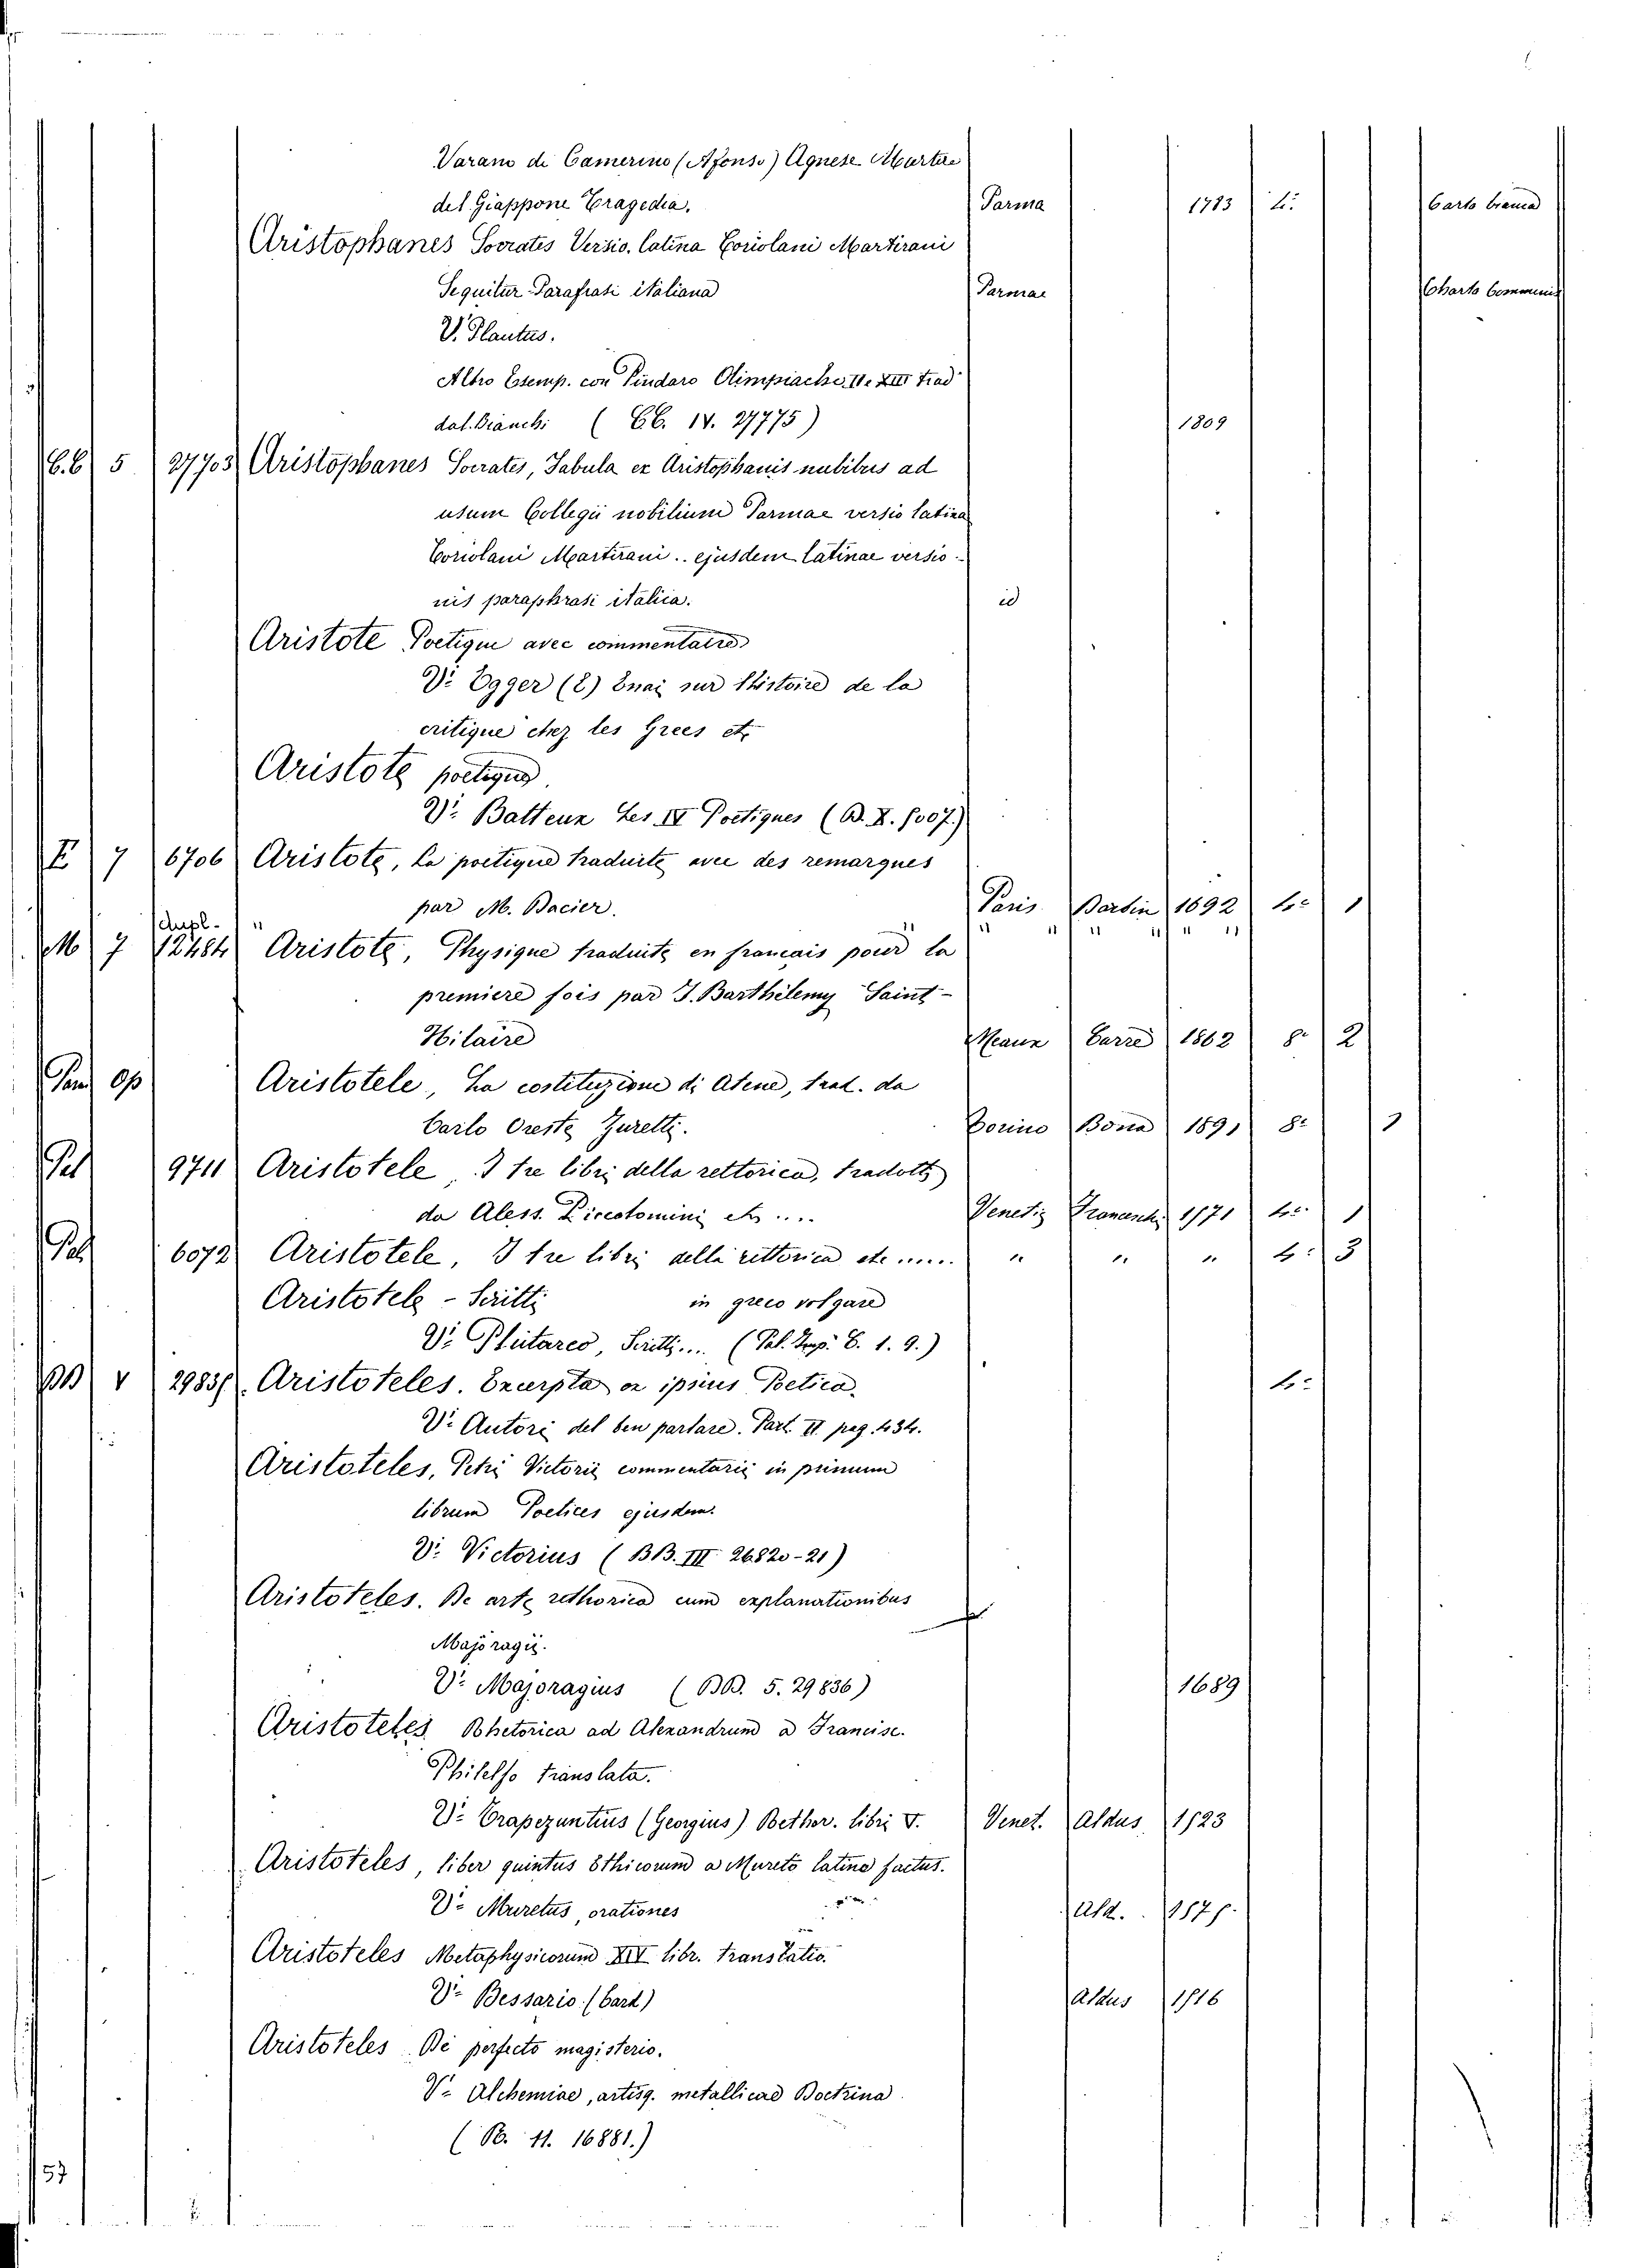 Varano di Camerino (Afonso) Agnese Martire
del Giappone Tragedia. Parma 1783 4.: Carta bianca
Aristophanes Socrates Versio. Latina Coriolani Martirani
Sequitur Parafrasi italiana Parmae Charta communis
V. Plautus.
Altro Esemp. con Pindaro Olimpiache II. e XIII trad
dal. Bianchi ( CC. 14. 27775) 1809
C.C 5 27703 Aristophanes Socrates, Fabula ex Aristophanis nubibus ad
usum Collegii nobilium Parmae versio latina
Coriolani Martirani .. ejusdem latinae versio-
nis paraphrasi italica. id
Aristote Poetique avec commentaire
V. Egger (E) Essai sur l'histoire de la
critique chez les Grecs etc
Aristote poetique.
V. Batteux Les IV Poetiques (B. X. 1507.)
E 7 6706 Aristote, La poetique traduite avec des remarques
par M. Dacier. Paris Barbin 1692 4.: 1
dupl. " " " " " " " "
M 7 12484 Aristote, Physique traduite en francais pour la
premiere fois par J. Barthélemy Saint-
Hilaire Meaux Carre 1862 8.: 2
Pan Op Aristotele, La costituzione di Atene, trad. da
Carlo Oreste Zuretti. Torino Bona 1891 8:
Pal 9711 Aristotele, I tre libri della rettorica, tradotti
da Aless. Piccolomini etc .... Venetiz Franceschi 1571 4.: 1
Pal 6072 Aristotele, I tre libri della rettorica etc ..... " " " 4.: 3
Aristotele - Scritti in greco volgare
V. Plutarco, Scritti .... (Pal. Imp. C. 1. 9.)
BB V 29835. Aristoteles. Excerpta ex ipsius Poetica. 4.:
V. Autori del ben parlare. Part. II pag. 434.
Aristoteles, Petri Victorii commentarii in primum
librum Poetices ejusdem.
V. Victorius ( BB. III 26820-21)
Aristoteles. De arte rethorica cum explanationibus
Majoragii.
V. Majoragius ( BB. 5. 29836) 1689
Aristoteles Rhetorica ad Alexandrum a Francisc.
Philelfo translata.
V. Trapezuntius (Georgius) Rethor. libri V. Venet. Aldus 1523
Aristoteles, liber quintus Ethicorum a Mureto latine factus.
V. Muretus, orationes Ald. 1575.
Aristoteles Metaphysicorum XIV libr. translatio.
V. Bessario (Card) Aldus 1516
Aristoteles De perfecto magisterio.
V. Alchemiae, artisq. metallicae Doctrina
( B. 11. 16881.)
57